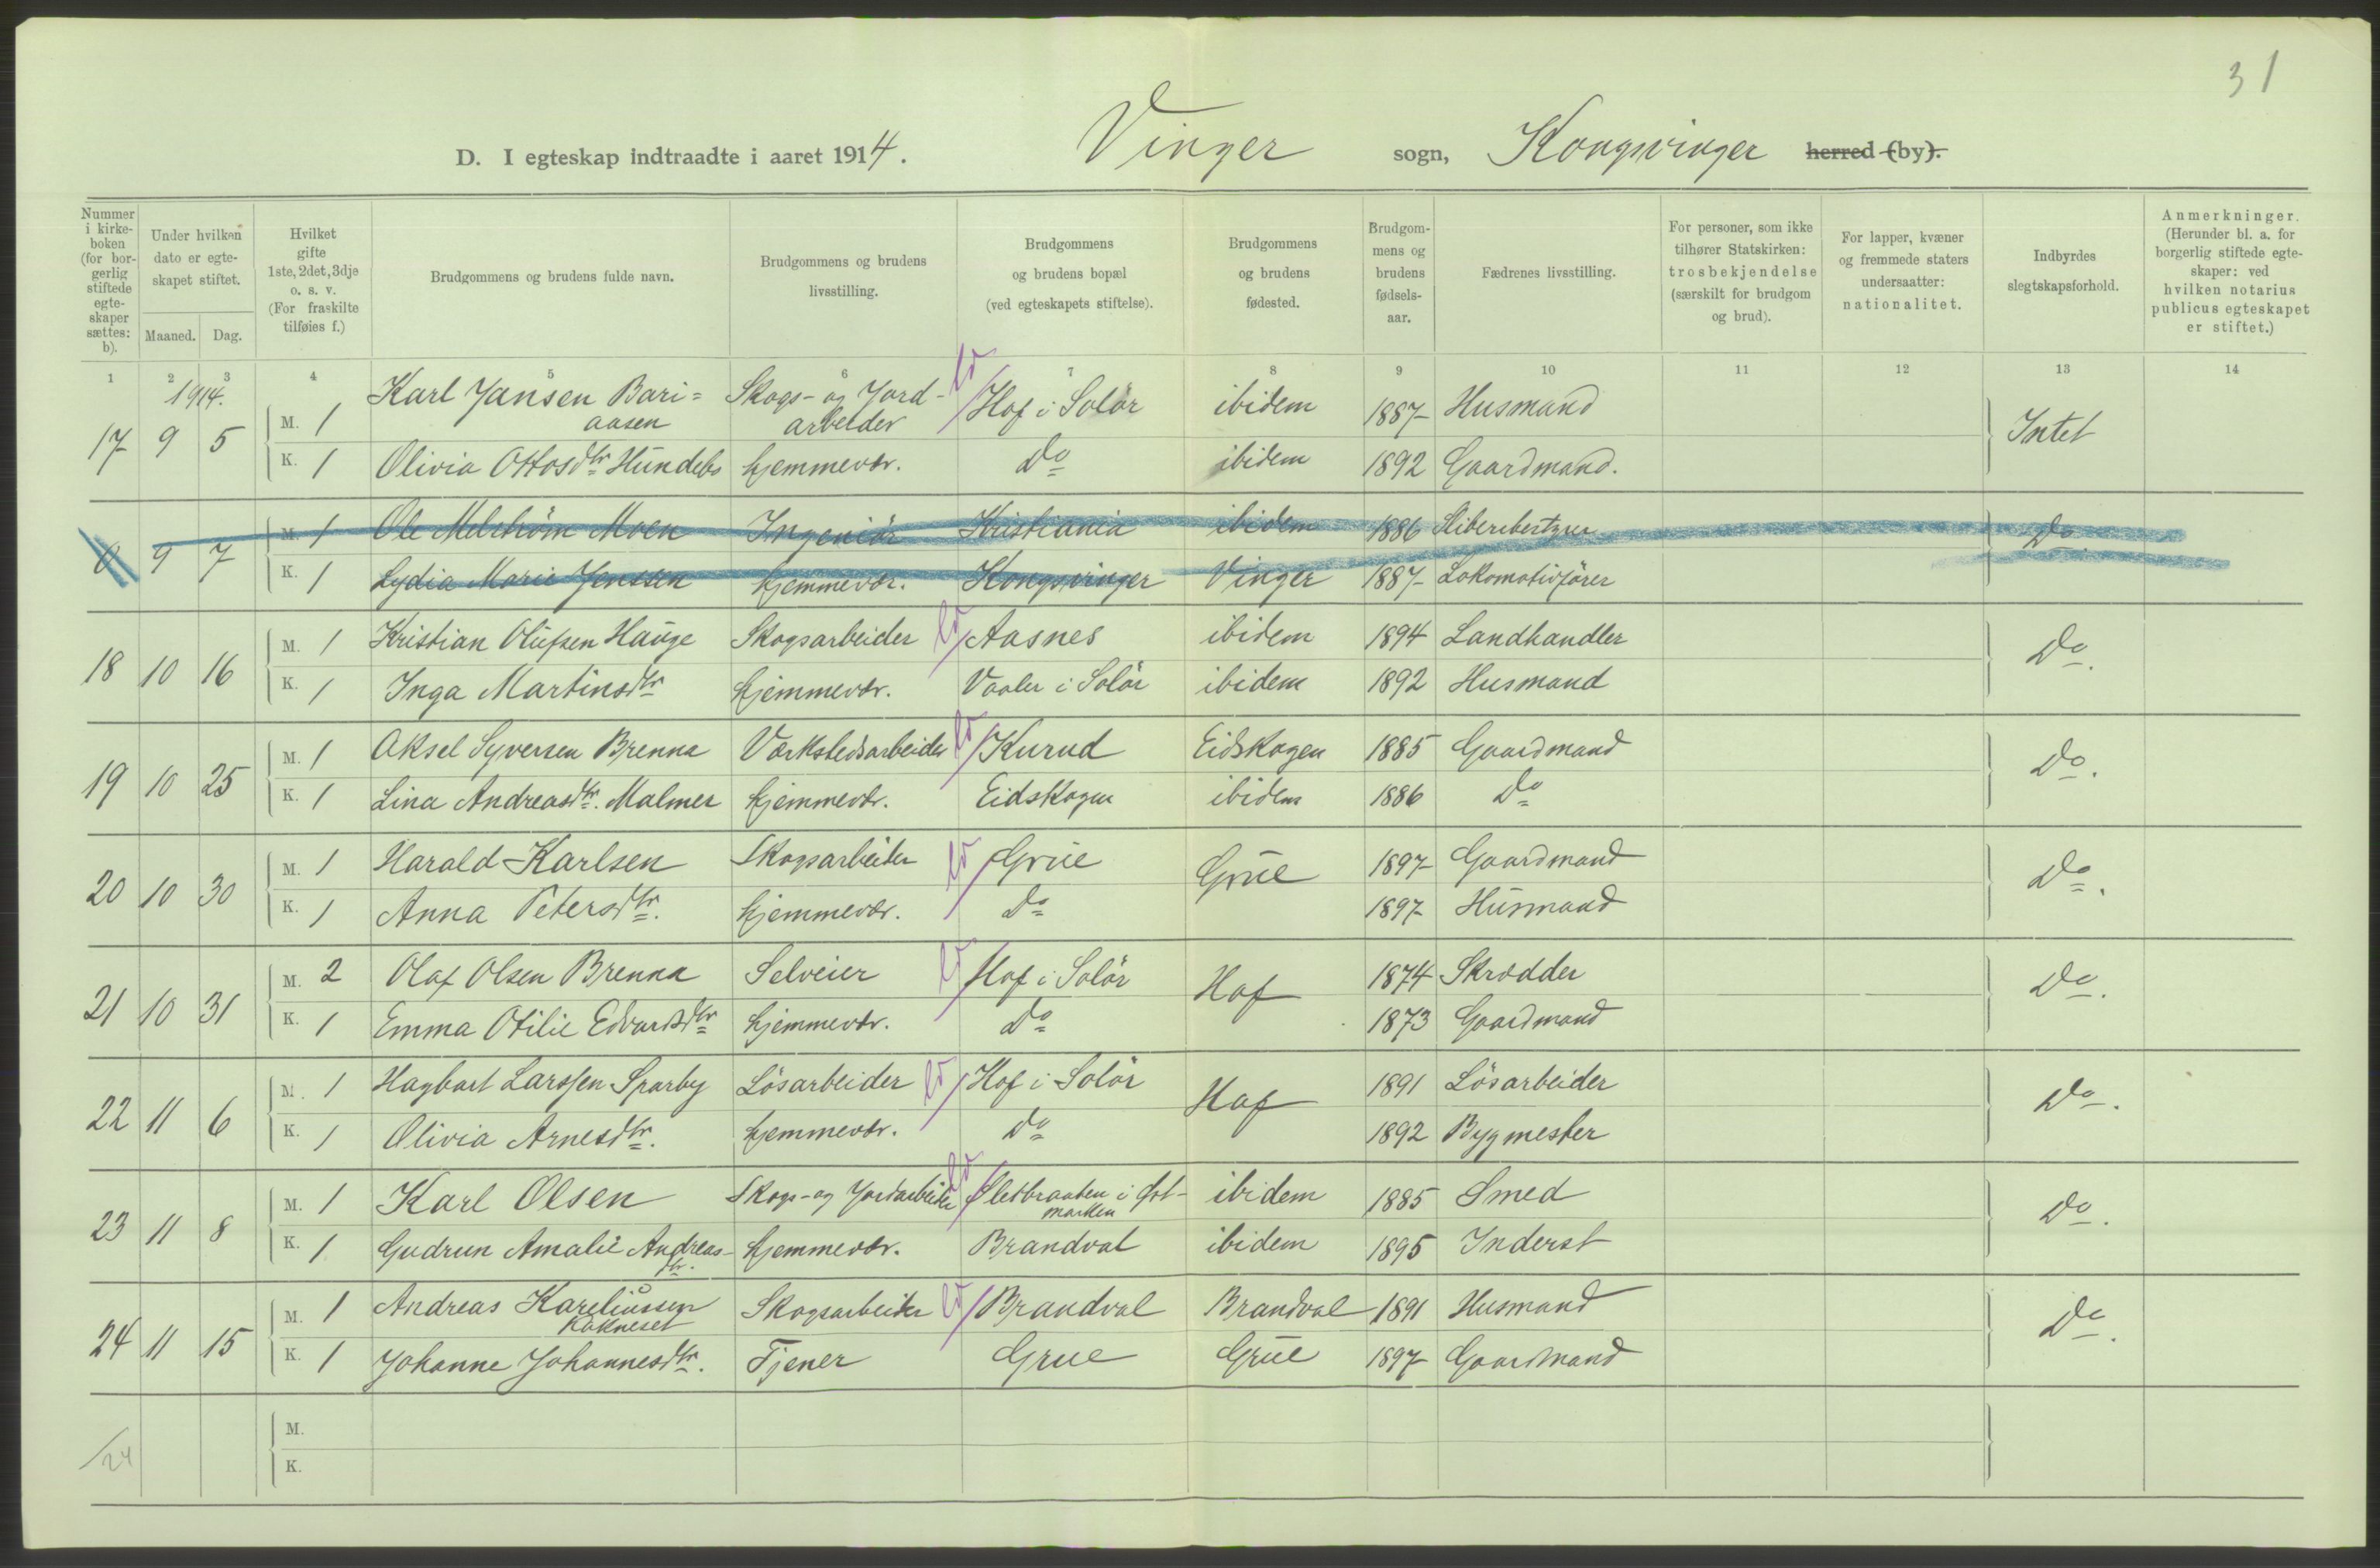 31
D. I egteskap indtraadte i aaret 1914. Vinger sogn, Kongsvinger herred (by).
Nummer i kirkeboken (for borgerlig stiftede egteskaper sættes: b).
Under hvilken dato er egteskapet stiftet.
Maaned. Dag.
Hvilket gifte 1ste, 2det, 3dje o. s. v. (For fraskilte tilføies f.)
Brudgommens og brudens fulde navn.
Brudgommens og brudens livsstilling.
Brudgommens og brudens bopæl (ved egteskapets stiftelse).
Brudgommens og brudens fødested.
Brudgommens og brudens fødselsaar.
Fædrenes livsstilling.
For personer, som ikke tilhører Statskirken: trosbekjendelse (særskilt for brudgom og brud).
For lapper, kvæner og fremmede staters undersaatter: nationalitet.
Indbyrdes slegtskapsforhold.
Anmerkninger. (Herunder bl. a. for borgerlig stiftede egteskaper: ved hvilken notarius publicus egteskapet er stiftet.)
1 2 3 4 5 6 7 8 9 10 11 12 13 14
1914.
17 9 5 M. 1 Karl Jansen Bari=aasen Skogs- og Jord-arbeider Hof i Solør ibidem 1887 Husmand Intet
K. 1 Olivia Ottosdtr Hundebs hjemmevær. Do ibidem 1892 Gaardmand.
0 9 7 M. 1 Ole Melström Moen Ingeniör Kristiania ibidem 1886 Do
K. 1 Lydia Marie Jensen hjemmevær. Kongsvinger Vinger 1887 Lokomotivfører
18 10 16 M. 1 Kristian Olufsen Hauge Skogsarbeider Aasnes ibidem 1894 Landhandler Do.
K. 1 Inga Martinsdtr hjemmevær. Vaaler i Solör ibidem 1892 Husmand
19 10 25 M. 1 Aksel Syversen Brenna Værkstedsarbeider Kurud Eidskogen 1885 Gaardmand Do.
K. 1 Lina Andreasdtr. Malmer hjemmevær. Eidskogen ibidem 1886 Do
20 10 30 M. 1 Harald Karlsen Skogsarbeider Grue Grue 1897 Gaardmand Do.
K. 1 Anna Petersdtr. hjemmevær. Do 1897 Husmand
21 10 31 M. 2 Olaf Olsen Brenna Selveier Hof i Solör Hof 1874 Skrædder Do.
K. 1 Emma Otilie Edvardsdtr hjemmevær. Do 1873 Gaardmand
22 11 6 M. 1 Hagbart Larssen Sparby Lösarbeider Hof i Solör Hof 1891 Lösarbeider Do.
K. 1 Olivia Arnesdtr. hjemmevær. Do 1892 Bygmester
23 11 8 M. 1 Karl Olsen Skogs- og Jordarbeider Sletbraaten i Øst-marken ibidem 1885 Smed Do.
K. 1 Gudrun Amalie Andreas-dtr. hjemmevær. Brandval ibidem 1895 Inderst
24 11 15 M. 1 Andreas Kareliussen Kakneset Skogsarbeider Brandval Brandval 1891 Husmand Do.
K. 1 Johanne Johannesdtr. Tjener Grue Grue 1897 Gaardmand
/24 M.
K.